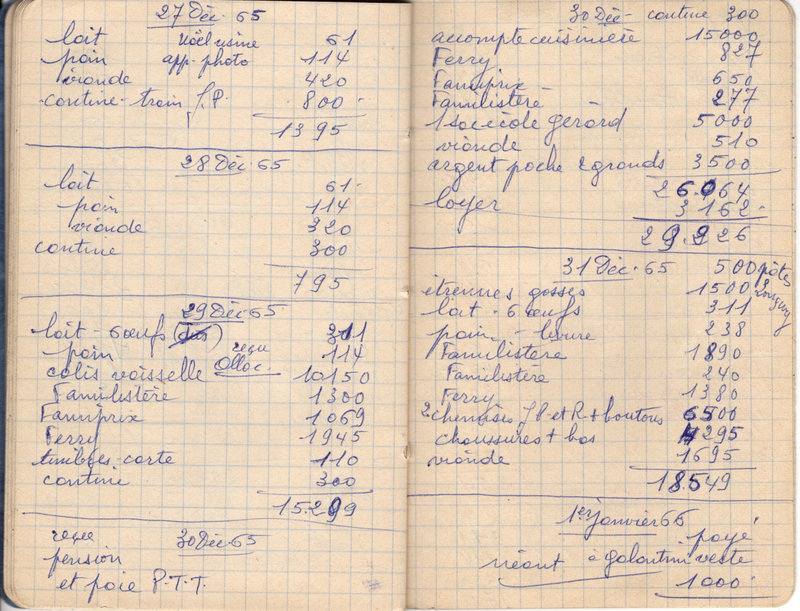 27 Déc. 65
lait Noël usine 61
pain app. photo 114
viande 420
cantine - train J.P. 800
1395
28 Déc 65
lait 61
pain 114
viande 320
cantine 300
795
29 Déc 65
lait - 6 œufs 311
pain 114
colis vaisselle reçu Alloc. 10150
Familistère 1300
Famiprix 1069
Ferry 1945
timbres-carte 110
cantine 300
15.299
reçu 30 Déc. 65
pension
et paie P.T.T.
30 Déc - cantine 300
accompte cuisinière 15000
Ferry 827
Famiprix 650
Familistère 277
1 sac école gérard 5000
viande 510
argent poche 2 grands 3500
26.064
loyer 3162
29.226
31 Déc. 65 500 pâtes
étrennes gosses 1500
lait - 6 œufs 311
pain - beurre 238
Familistère 1890
Familistère 240
Ferry 1380
2 chemises J.P. et R. + boutons 6500
chaussures + bas 4295
viande 1695
18.549
1er janvier 66
payé
néant à galantini veste
1000